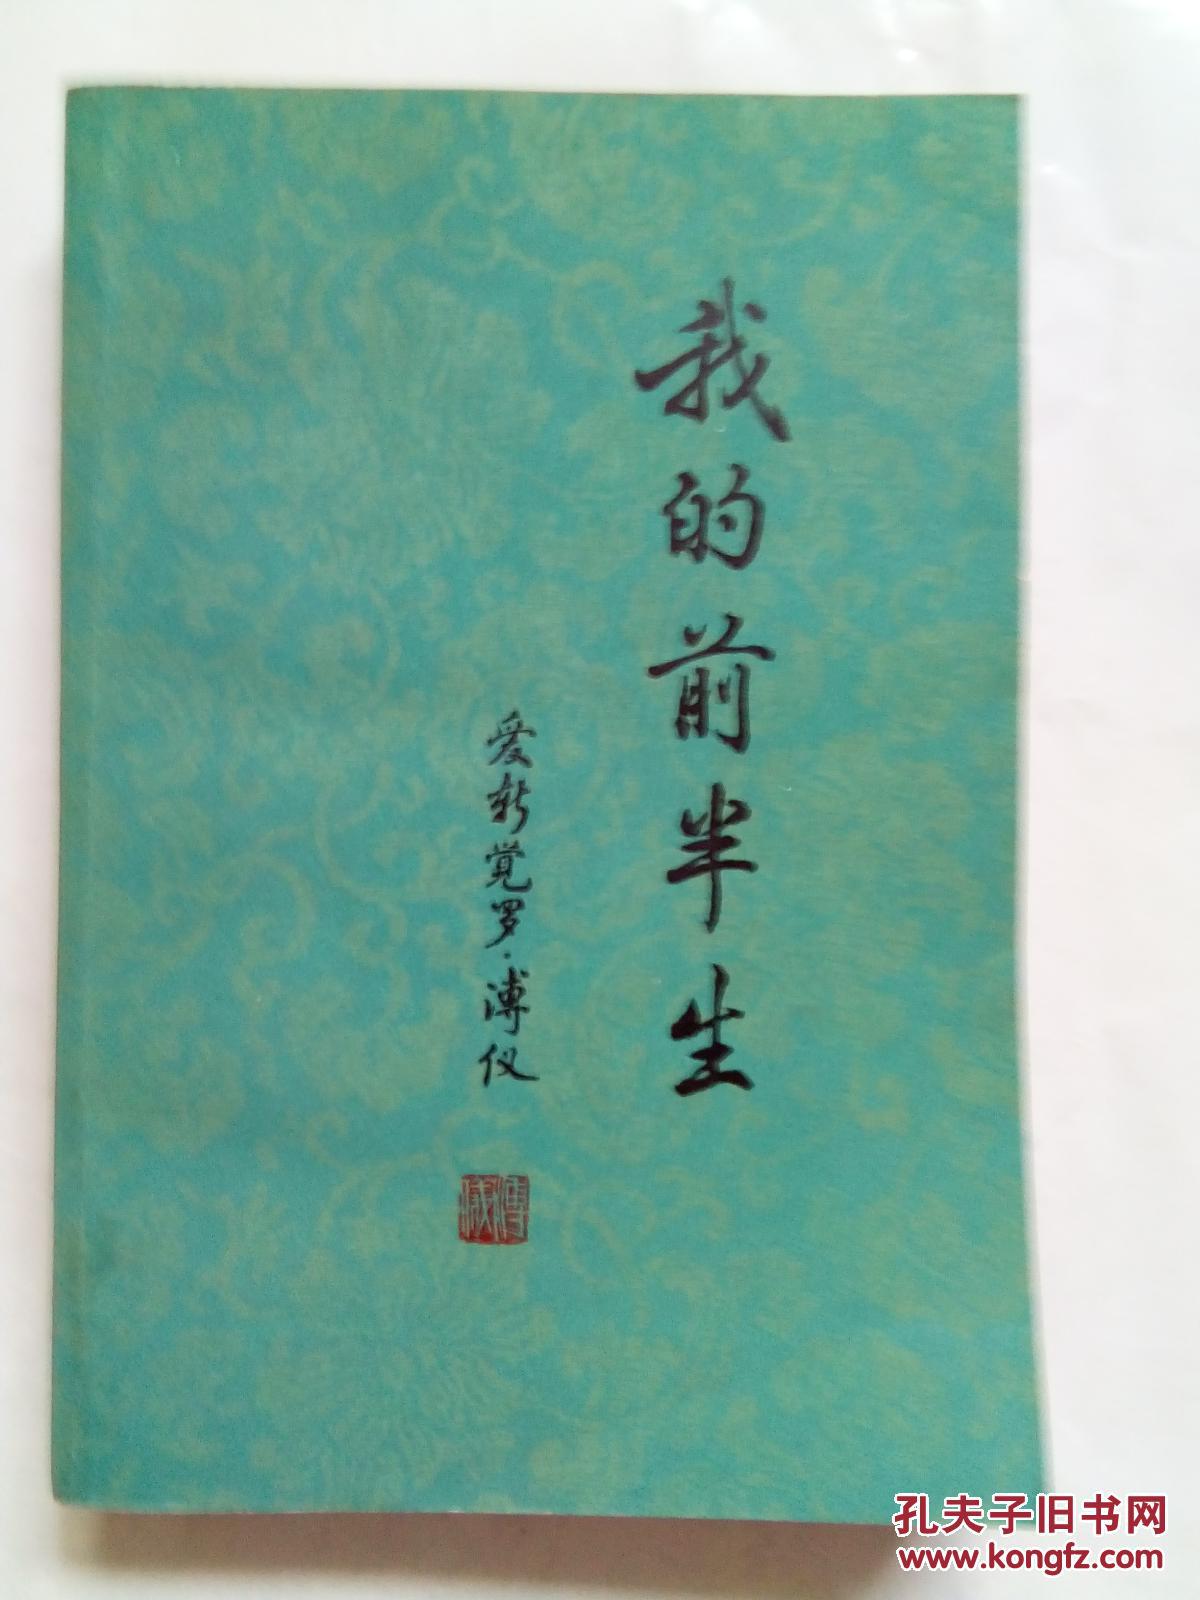 我的前半生
爱新觉罗·溥仪
溥仪
孔夫子旧书网
www.kongfz.com